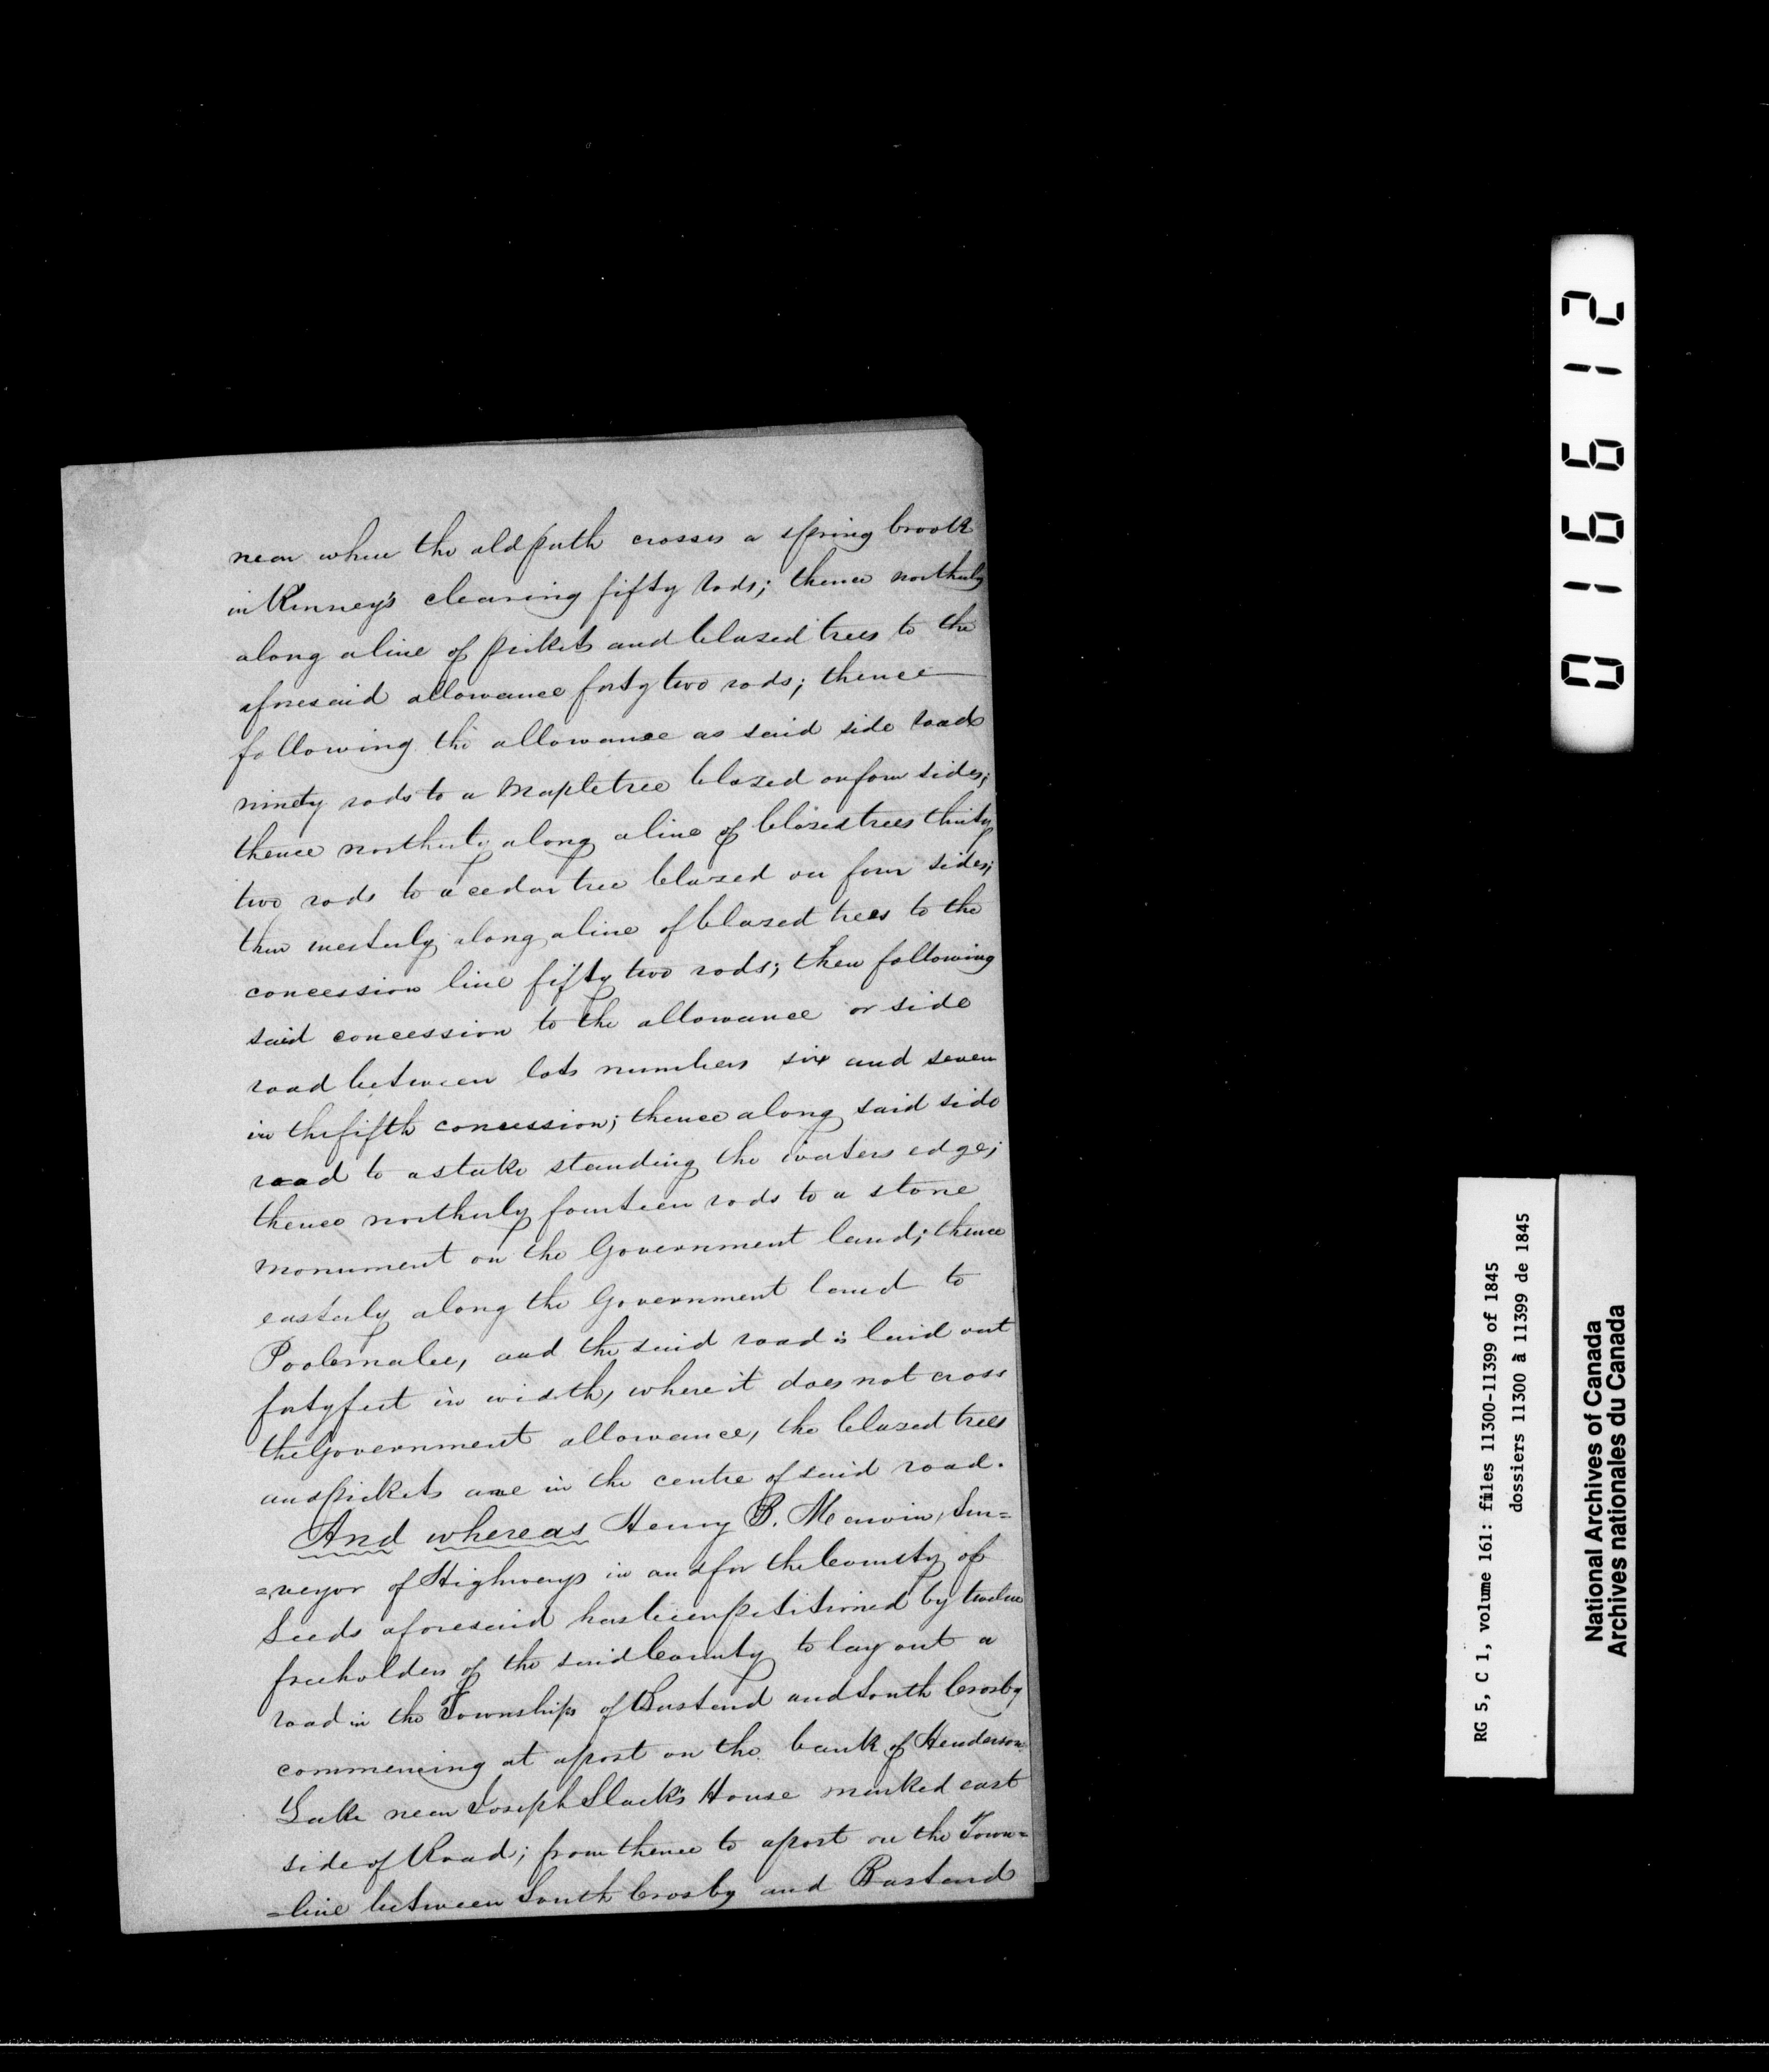 near where the old path crosses a spring brook
in Kenney's clearing fifty rods; thence northerly
along a line of pickets and blazed trees to the
aforesaid allowance forty two rods; thence
following the allowance as said side road
ninety rods to a Maple tree blazed on four sides;
thence northerly along a line of blazed trees thirty
two rods to a cedar tree blazed on four sides;
then westerly along a line of blazed trees to the
concession line fifty two rods; then following
said concession to the allowance or side
road between lots numbers six and seven
in the fifth concession; thence along said side
road to a stake standing the waters edge;
thence northerly fourteen rods to a stone
monument on the Government land; thence
easterly along the Government land to
Poolemalee, and the said road is laid out
forty feet in width, where it does not cross
the Government allowance, the blazed trees
and pickets are in the centre of said road.
And whereas Henry B. Merwin, Sur=
=veyor of Highways in and for the County of
Leeds aforesaid has been petitioned by twelve
freeholders of the said County to lay out a
road in the Townships of Bastard and South Crosby
commencing at a post on the bank of Henderson
Lake near Joseph Slack's House marked east
side of Road; from thence to a post on the Town=
=line between South Crosby and Bastard
016612
RG 5, C 1, volume 161: files 11300-11399 of 1845
dossiers 11300 à 11399 de 1845
National Archives of Canada
Archives nationales du Canada